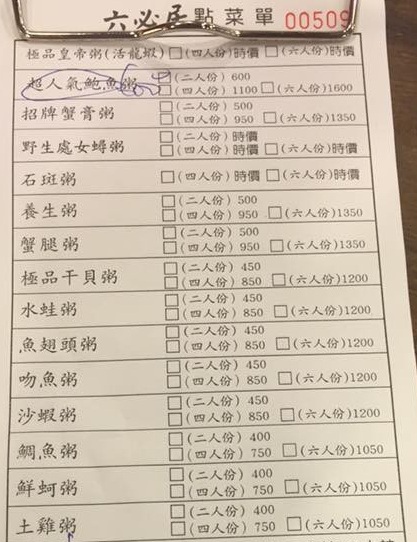 六必居 點菜單 00509
極品皇帝粥(活龍蝦) □(四人份)時價 □(六人份)時價
超人氣鮑魚粥 □(二人份) 600
□(四人份) 1100 □(六人份)1600
招牌蟹膏粥 □(二人份) 500
□(四人份) 950 □(六人份)1350
野生處女蟳粥 □(二人份)時價
□(四人份)時價 □(六人份)時價
石斑粥 □(四人份)時價 □(六人份)時價
養生粥 □(二人份) 500
□(四人份) 950 □(六人份)1350
蟹腿粥 □(二人份) 500
□(四人份) 950 □(六人份)1350
極品干貝粥 □(二人份) 450
□(四人份) 850 □(六人份)1200
水蛙粥 □(二人份) 450
□(四人份) 850 □(六人份)1200
魚翅頭粥 □(二人份) 450
□(四人份) 850 □(六人份)1200
吻魚粥 □(二人份) 450
□(四人份) 850 □(六人份)1200
沙蝦粥 □(二人份) 450
□(四人份) 850 □(六人份)1200
鯛魚粥 □(二人份) 400
□(四人份) 750 □(六人份)1050
鮮蚵粥 □(二人份) 400
□(四人份) 750 □(六人份)1050
土雞粥 □(二人份) 400
□(四人份) 750 □(六人份)1050